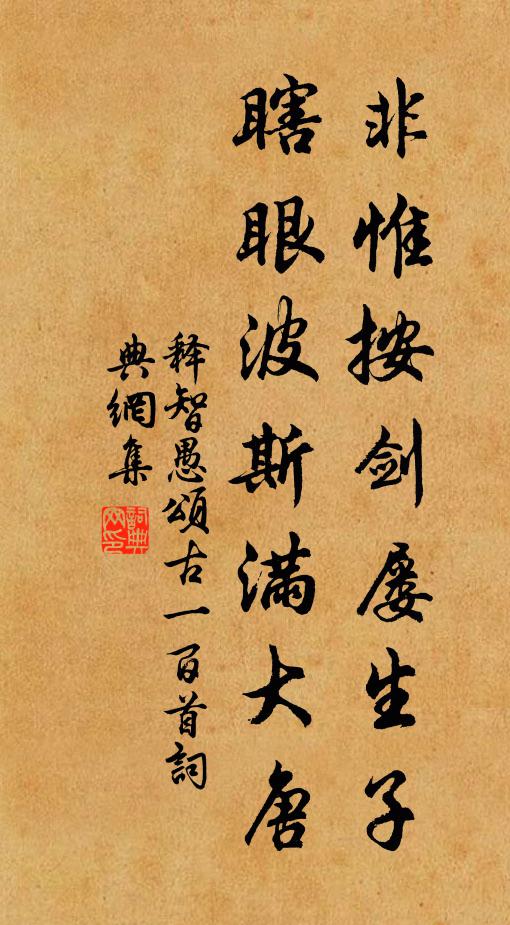 非惟按剑屡生子
瞎眼波斯满大唐
释智愚颂古一百首詞
典網集
詞典網印